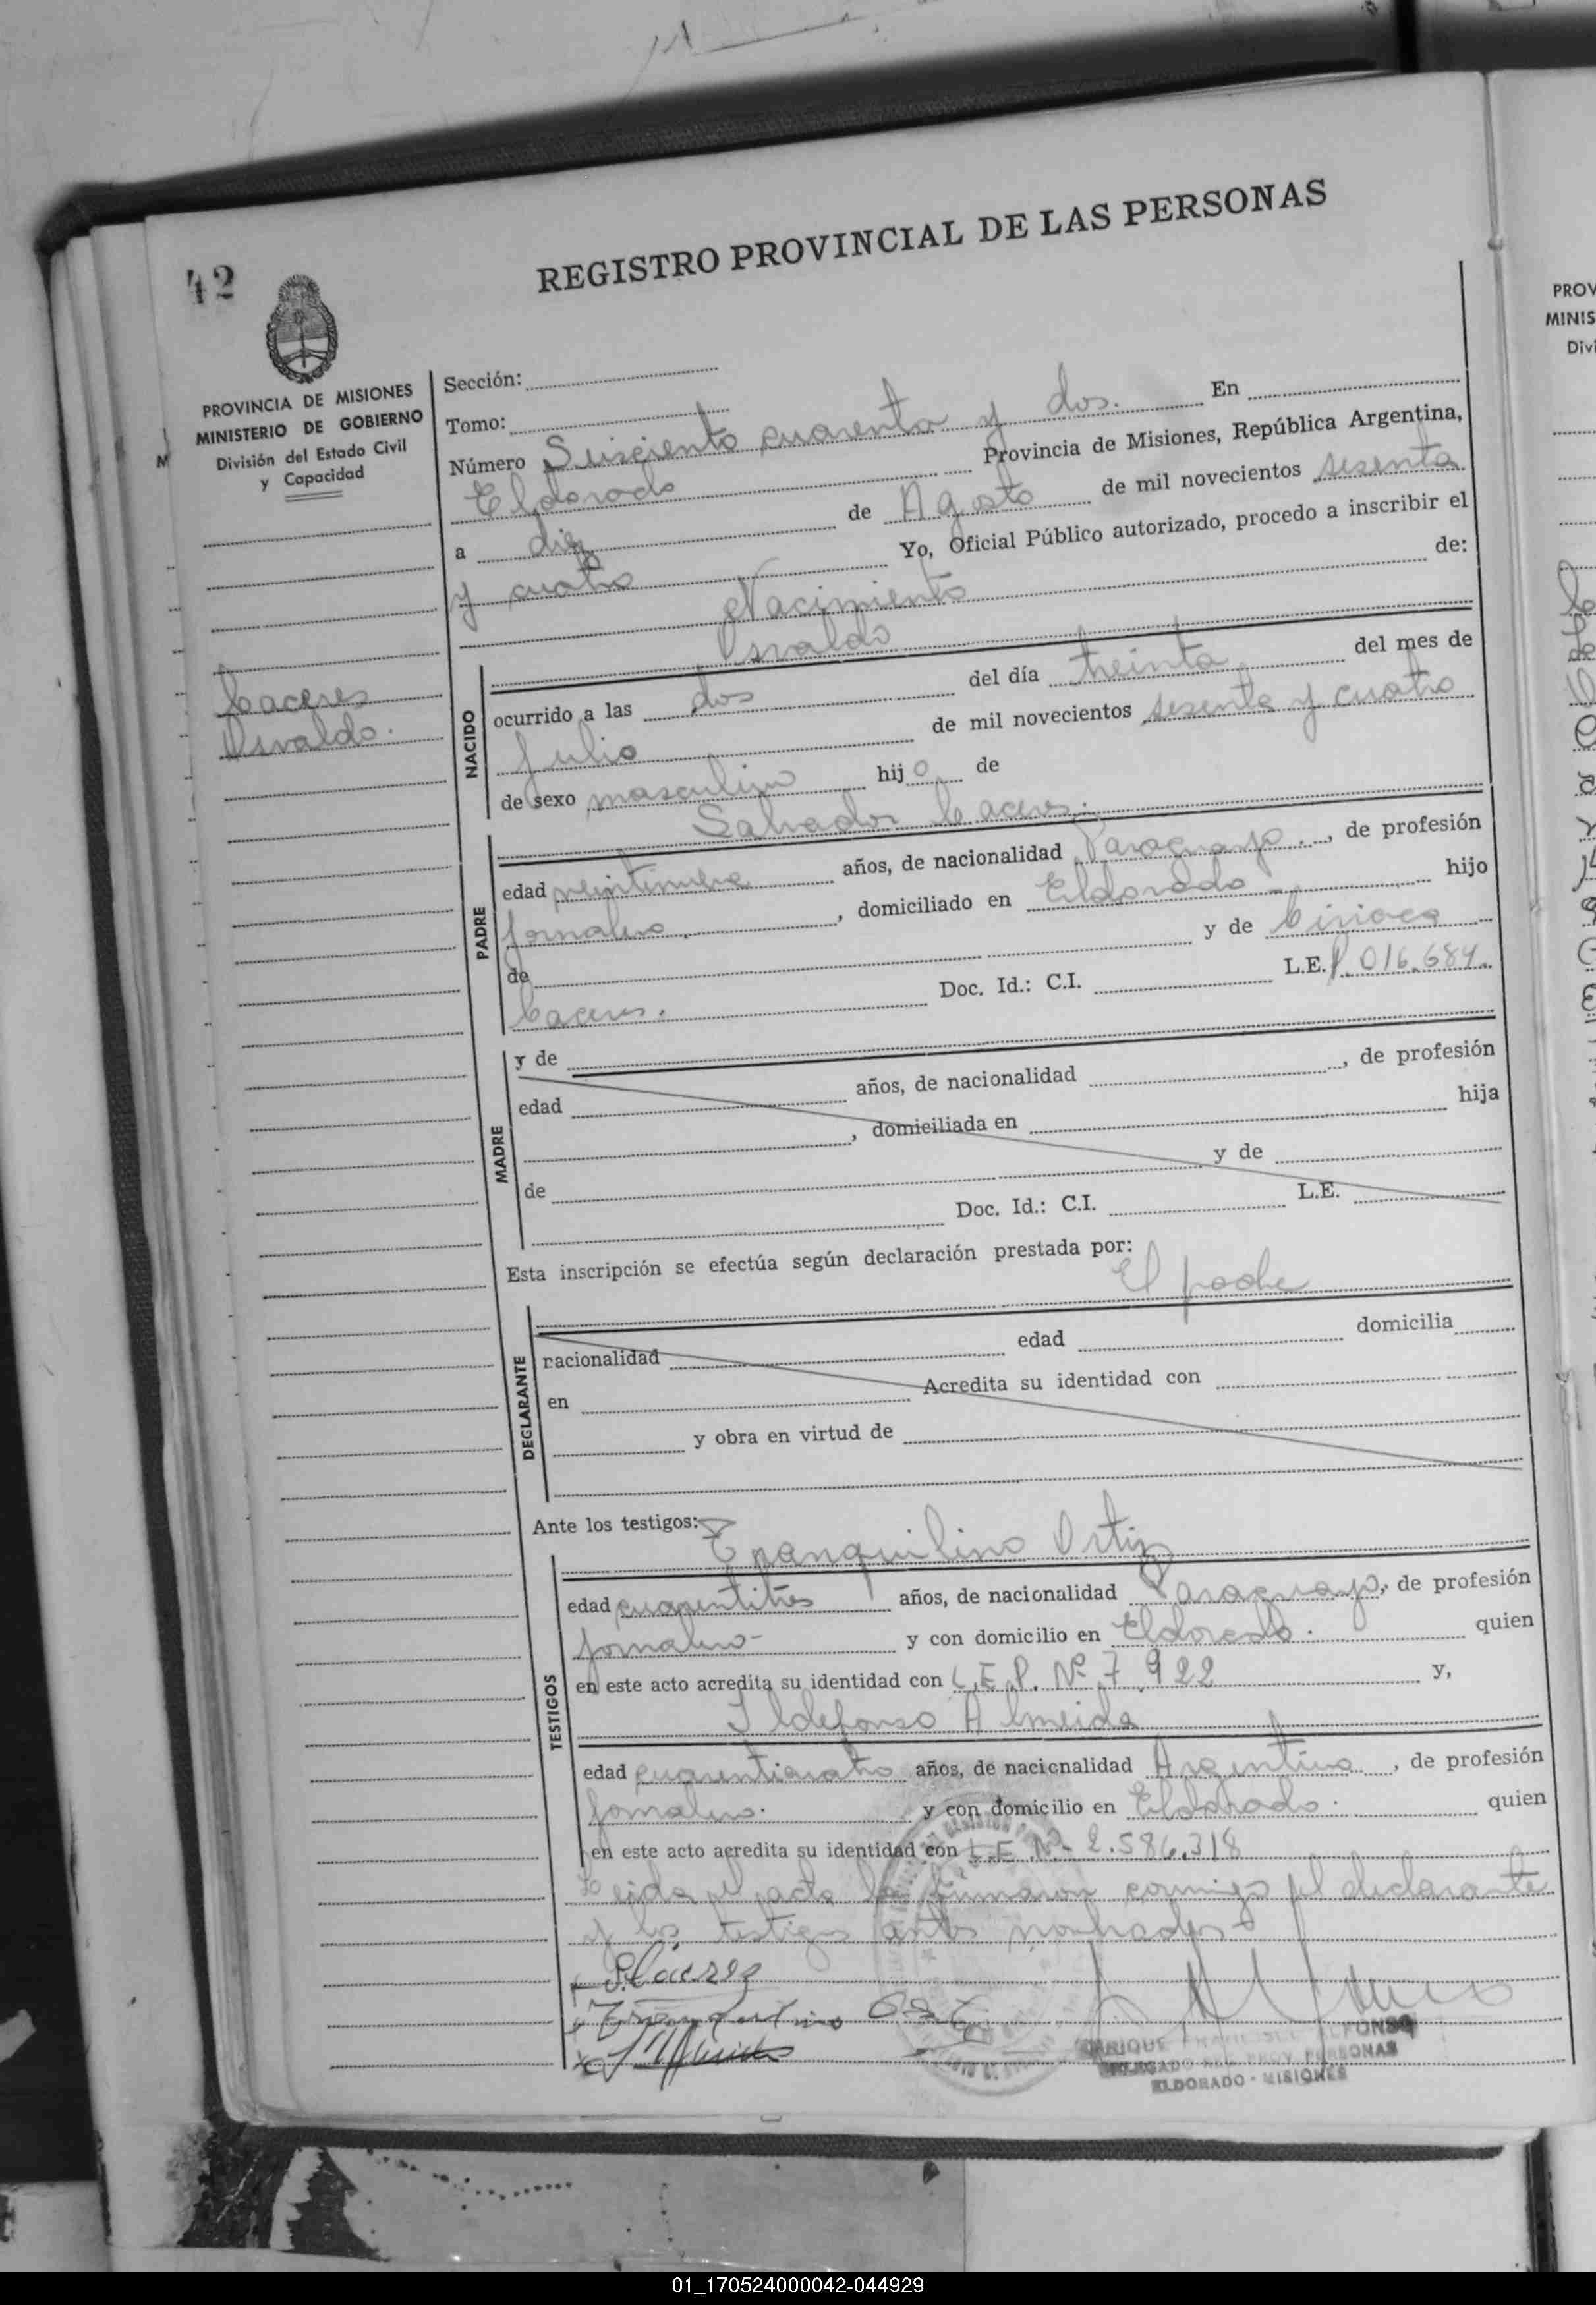 REGISTRO PROVINCIAL DE LAS PERSONAS
42
PROVINCIA DE MISIONES
MINISTERIO DE GOBIERNO
División del Estado Civil
y Capacidad
Caceres
Osvaldo.
Sección:
Tomo:
Número Seisciento cuarenta y dos. En
Eldorado Provincia de Misiones, República Argentina,
a diez de Agosto de mil novecientos sesenta
y cuatro Yo, Oficial Público autorizado, procedo a inscribir el
Nacimiento de:
Osvaldo
NACIDO
ocurrido a las dos del día treinta del mes de
Julio de mil novecientos sesenta y cuatro
de sexo masculino hijo de
Salvador Caceres.
PADRE
edad veintinueve años, de nacionalidad Paraguayo, de profesión
jornalero, domiciliado en Eldorado hijo
de y de Ciriaca
Caceres. Doc. Id.: C.I. L.E. P. 016.684.
MADRE
y de
edad años, de nacionalidad , de profesión
, domiciliada en hija
de y de
Doc. Id.: C.I. L.E.
Esta inscripción se efectúa según declaración prestada por:
El padre
DECLARANTE
nacionalidad edad domicilia
en Acredita su identidad con
y obra en virtud de
Ante los testigos:
Tranquilino Ortiz
TESTIGOS
edad cuarentitres años, de nacionalidad Paraguayo, de profesión
jornalero- y con domicilio en Eldorado. quien
en este acto acredita su identidad con C.E.P. Nº 7.922 y,
Ildefonso Almeida
edad cuarenticuatro años, de nacionalidad Argentino, de profesión
jornalero. y con domicilio en Eldorado. quien
en este acto acredita su identidad con L.E. Nº 2.586.318
Leida el acta la firmaron conmigo el declarante
y los testigos antes nombrados
S. Cáceres
Tranquilino Ortiz
ENRIQUE ALFONSO
DELEGADO REG. PROV. PERSONAS
ELDORADO - MISIONES
PROV
MINIS
Divi
01_170524000042-044929